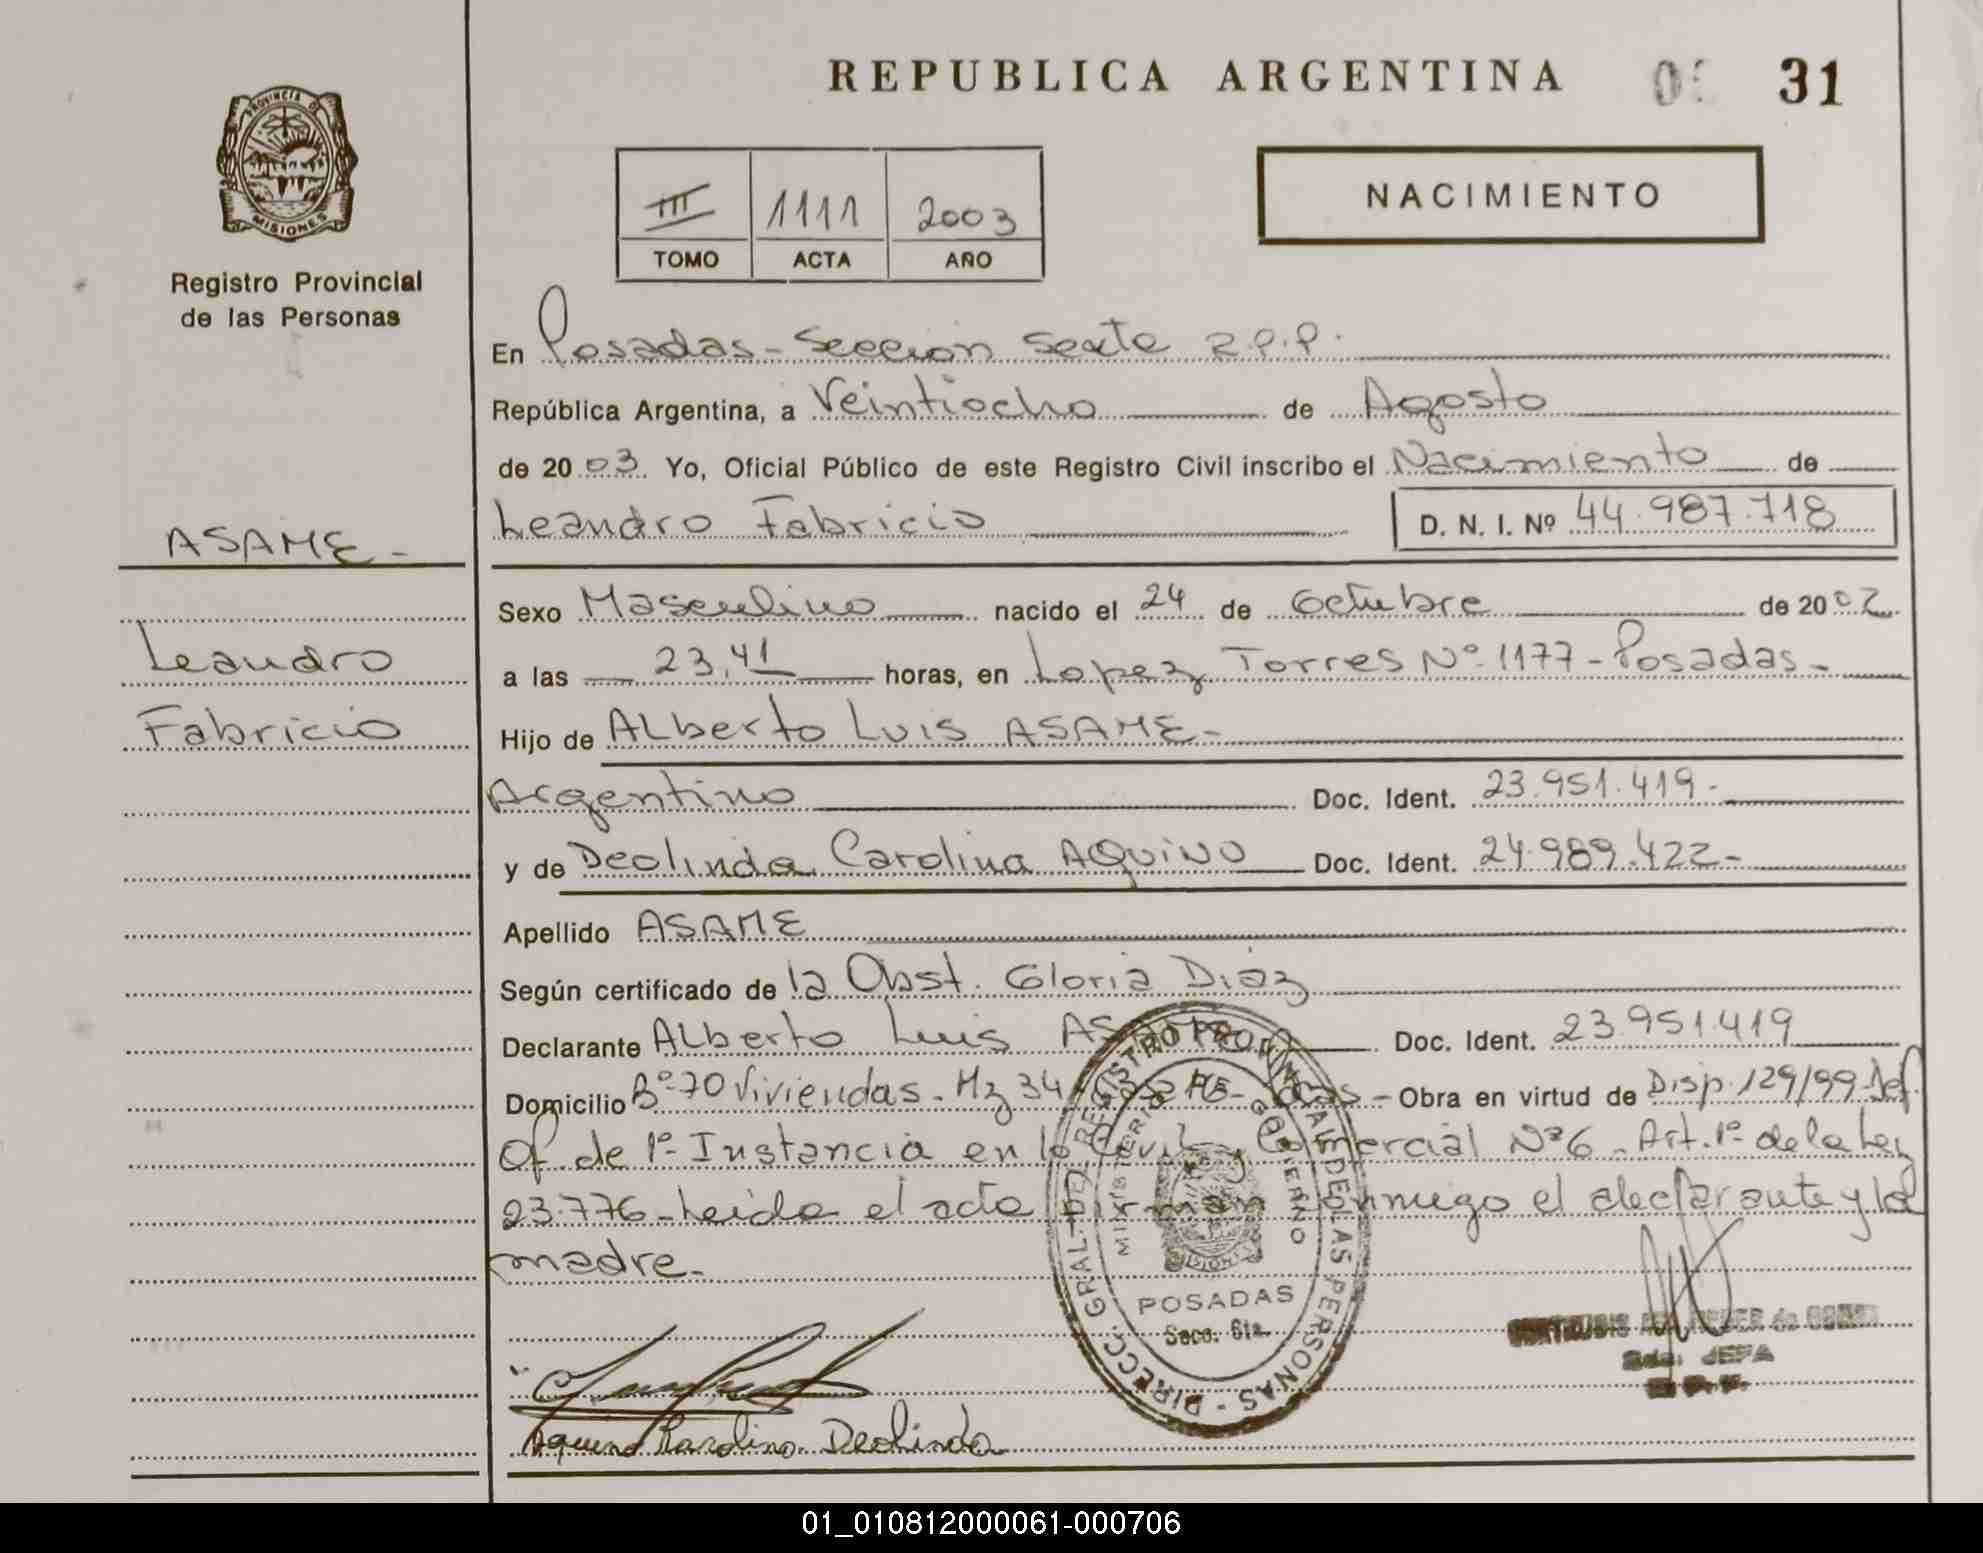 REPUBLICA ARGENTINA 31
PROVINCIA D
MISIONES
Registro Provincial
de las Personas
NACIMIENTO
III 1111 2003
TOMO ACTA AÑO
En Posadas - Seccion Sexta R.P.P.
República Argentina, a Veintiocho de Agosto
de 2003. Yo, Oficial Público de este Registro Civil inscribo el Nacimiento de
Leandro Fabricio D. N. I. Nº 44.987.718
ASAME -
Leandro
Fabricio
Sexo Masculino nacido el 24 de Octubre de 2002
a las 23,41 horas, en Lopez Torres Nº 1177 - Posadas -
Hijo de ALberto Luis ASAME -
Argentino Doc. Ident. 23.951.419 -
y de Deolinda Carolina AQuino Doc. Ident. 24.989.422 -
Apellido ASAME
Según certificado de la Obst. Gloria Diaz
Declarante ALberto Luis ASAME Doc. Ident. 23.951.419
Domicilio Bº 70 Viviendas - Mz 34 - Obra en virtud de Disp. 129/99 Def.
Of. de 1º Instancia en lo Civil y Comercial Nº 6 - Art. 1º de la Ley
23.776 - Leida el acta firman conmigo el declarante y la
madre -
DIRECC. GRAL. DEL REGISTRO PROVINCIAL DE LAS PERSONAS -
MINISTERIO GOBIERNO
POSADAS
Secc. 6ta.
JEFA
Aquino Karolina Deolinda
01_010812000061-000706